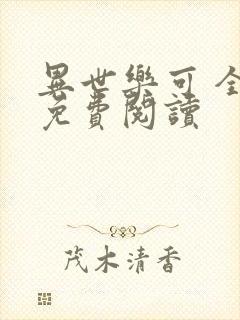 異世樂可 全
免費閱讀
茂木清香